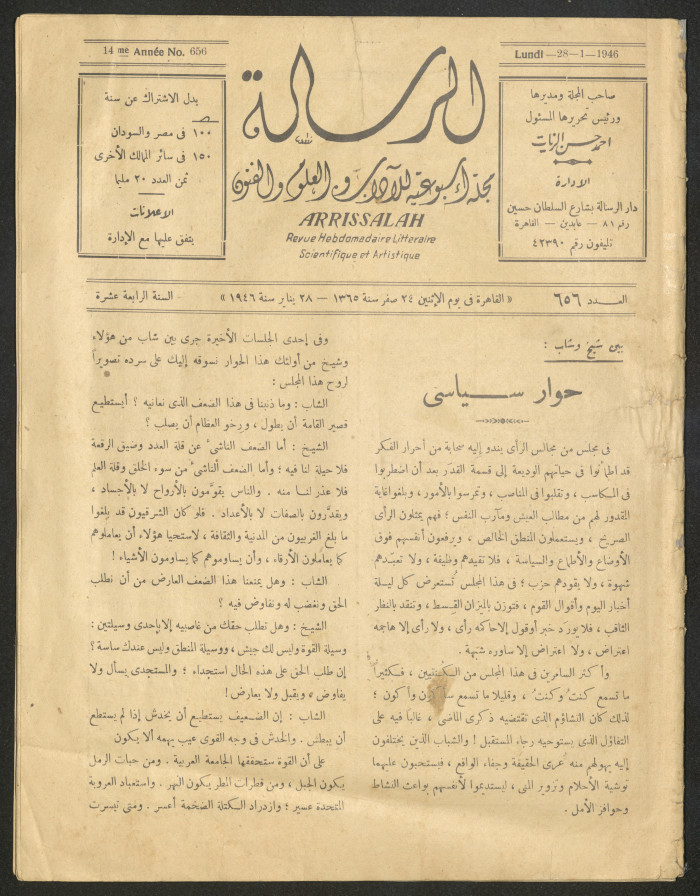 14 me Année No. 656
Lundi —28—1—1946
بدل الاشتراك عن سنة
١٠٠ فى مصر والسودان
١٥٠ فى سائر الممالك الأخرى
ثمن العدد ٢٠ مليما
الاعلانات
يتفق عليها مع الإدارة
الرسالة
مجلة أسبوعية للآداب والعلوم والفنون
ARRISSALAH
Revue Hebdomadaire Litteraire
Scientifique et Artistique
صاحب المجلة ومديرها
ورئيس تحريرها المسئول
احمد حسن الزيات
الادارة
دار الرسالة بشارع السلطان حسين
رقم ٨١ — عابدين — القاهرة
تليفون رقم ٤٢٣٩٠
العدد ٦٥٦
« القاهرة فى يوم الإثنين ٢٤ صفر سنة ١٣٦٥ — ٢٨ يناير سنة ١٩٤٦ »
السنة الرابعة عشرة
بين شيخ وشاب :
حوار سياسى
فى مجلس من مجالس الرأى يندو إليه صحابة من أحرار الفكر
قد اطمأنوا فى حياتهم الوديعة إلى قسمة القدَر بعد أن اضطربوا
فى المكاسب ، وتقلبوا فى المناصب ، وتمرسوا بالأمور ، وبلغوا غاية
المقدور لهم من مطالب العيش ومآرب النفس ؛ فهم يمثلون الرأى
الصريح ، ويستعملون المنطق الخالص ، ويرفعون أنفسهم فوق
الأوضاع والأطماع والسياسة ، فلا تقيدهم وظيفة ، ولا تعبّدهم
شهوة ، ولا يقودهم حزب ؛ فى هذا المجلس تُستعرض كل ليلة
أخبار اليوم وأقوال القوم ، فتوزن بالميزان القِسط ، وتنقد بالنظر
الثاقب ، فلا يورَد خبر أو قول إلا حاكه رأى ، ولا رأى إلا هاجه
اعتراض ، ولا اعتراض إلا ساوره شبهة .
وأكثر السامرين فى هذا المجلس من الكُنتيين ، فكثيراً
ما تسمع كنتُ وكنتُ ، وقليلا ما تسمع سأكون وأكون ؛
لذلك كان التشاؤم الذى تقتضيه ذكرى الماضى ، غالباً فيه على
التفاؤل الذى يستوحيه رجاء المستقبل ! والشباب الذين يختلفون
إليه يهولهم منه عُرى الحقيقة وجفاء الواقع ، فيستحبون عليهما
توشية الأحلام وتزوير المنى ، ليستديموا لأنفسهم بواعث النشاط
وحوافز الأمل .
وفى إحدى الجلسات الأخيرة جرى بين شاب من هؤلاء
وشيخ من أولئك هذا الحوار نسوقه إليك على سرده تصويراً
لروح هذا المجلس :
الشاب : وما ذنبنا فى هذا الضعف الذى نعانيه ؟ أيستطيع
قصير القامة أن يطول ، ورخو العظام أن يصلب ؟
الشيخ : أما الضعف الناشئ عن قلة العدد وضيق الرقعة
فلا حيلة لنا فيه ؛ وأما الضعف الناشئ من سوء الخلق وقلة العلم
فلا عذر لنا منه . والناس يقوَّمون بالأرواح لا بالأجساد ،
ويقدَّرون بالصفات لا بالأعداد . فلو كان الشرقيون قد بلغوا
ما بلغ الغربيون من المدنية والثقافة ، لاستحيا هؤلاء أن يعاملوهم
كما يعاملون الأرقاء ، وأن يساوموهم كما يساومون الأشياء !
الشاب : وهل يمنعنا هذا الضعف العارض من أن نطلب
الحق ونغضب له ونفاوض فيه ؟
الشيخ : وهل نطلب حقك من غاصبيه إلا بإحدى وسيلتين :
وسيلة القوة وليس لك جيش ، ووسيلة المنطق وليس عندك ساسة ؟
إن طلب الحق على هذه الحال استجداء ؛ والمستجدى يسأل ولا
يفاوض ، ويقبل ولا يعارض !
الشاب : إن الضعيف يستطيع أن يخدش إذا لم يستطع
أن يبطش . والخدش فى وجه القوى عيب يهمه ألا يكون
على أن القوة ستحققها الجامعة العربية . ومن حبات الرمل
يكون الجبل ، ومن قطرات المطر يكون النهر . واستعباد العروبة
المتحدة عسير ؛ وازدراد الكتلة الضخمة أعسر . ومتى تيسرت